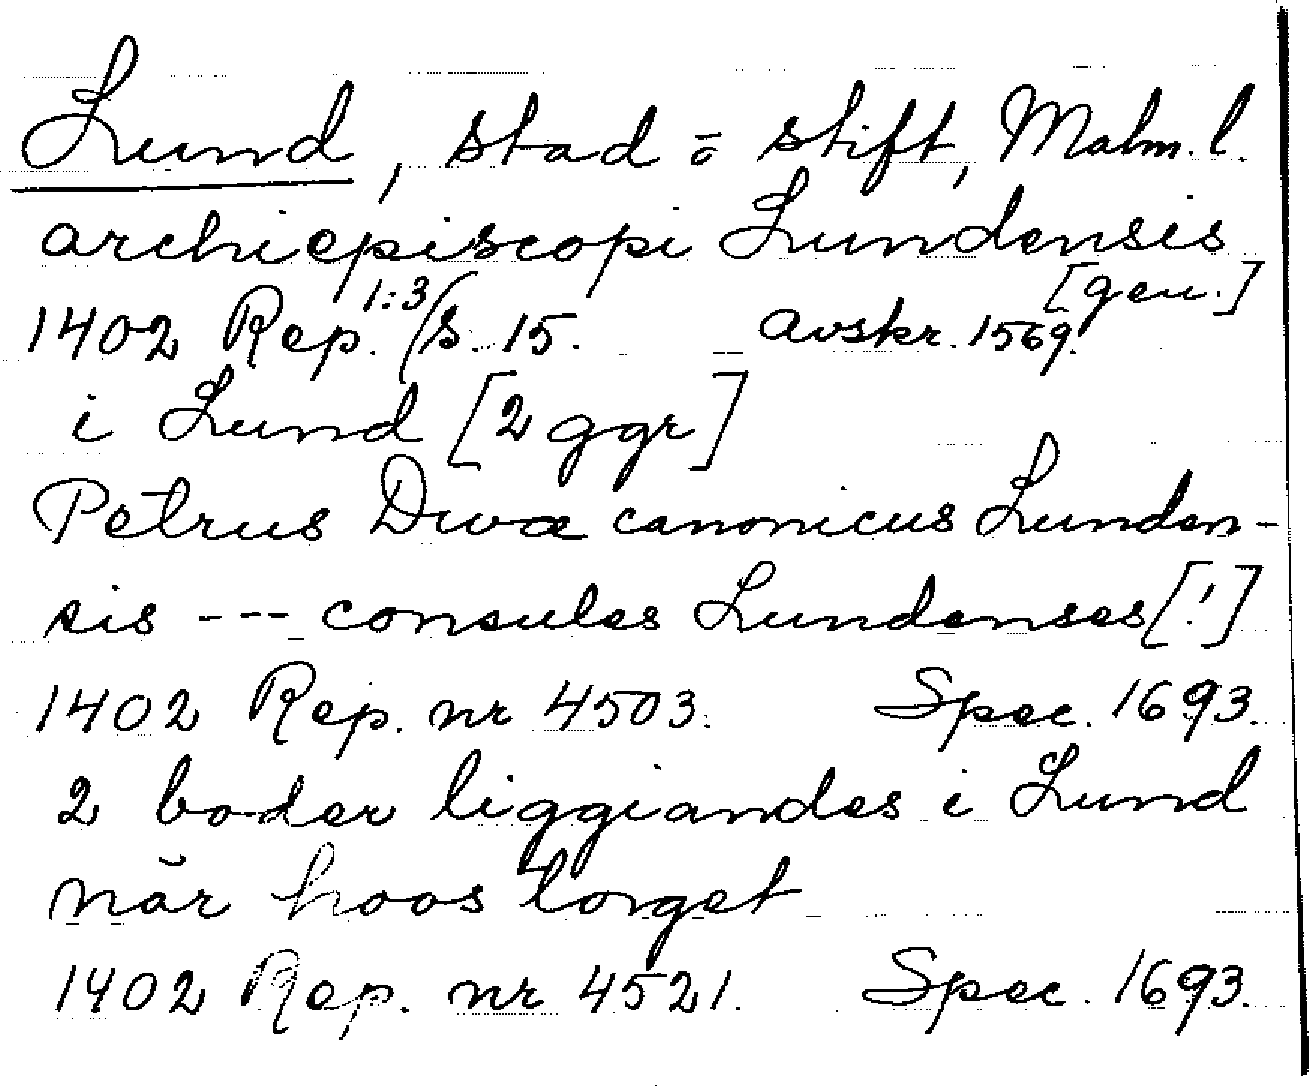 Lund, stad o stift, Malm. l.
archiepiscopi Lundensis
[gen.]
1402 Rep. 1:3 (s. 15. avskr. 1569.
i Lund [2 ggr]
Petrus Divæ canonicus Lunden-
sis --- consules Lundenses [!]
1402 Rep. nr 4503. Spec. 1693.
2 boder liggiandes i Lund
når hoos torget
1402 Rep. nr 4521. Spec. 1693.